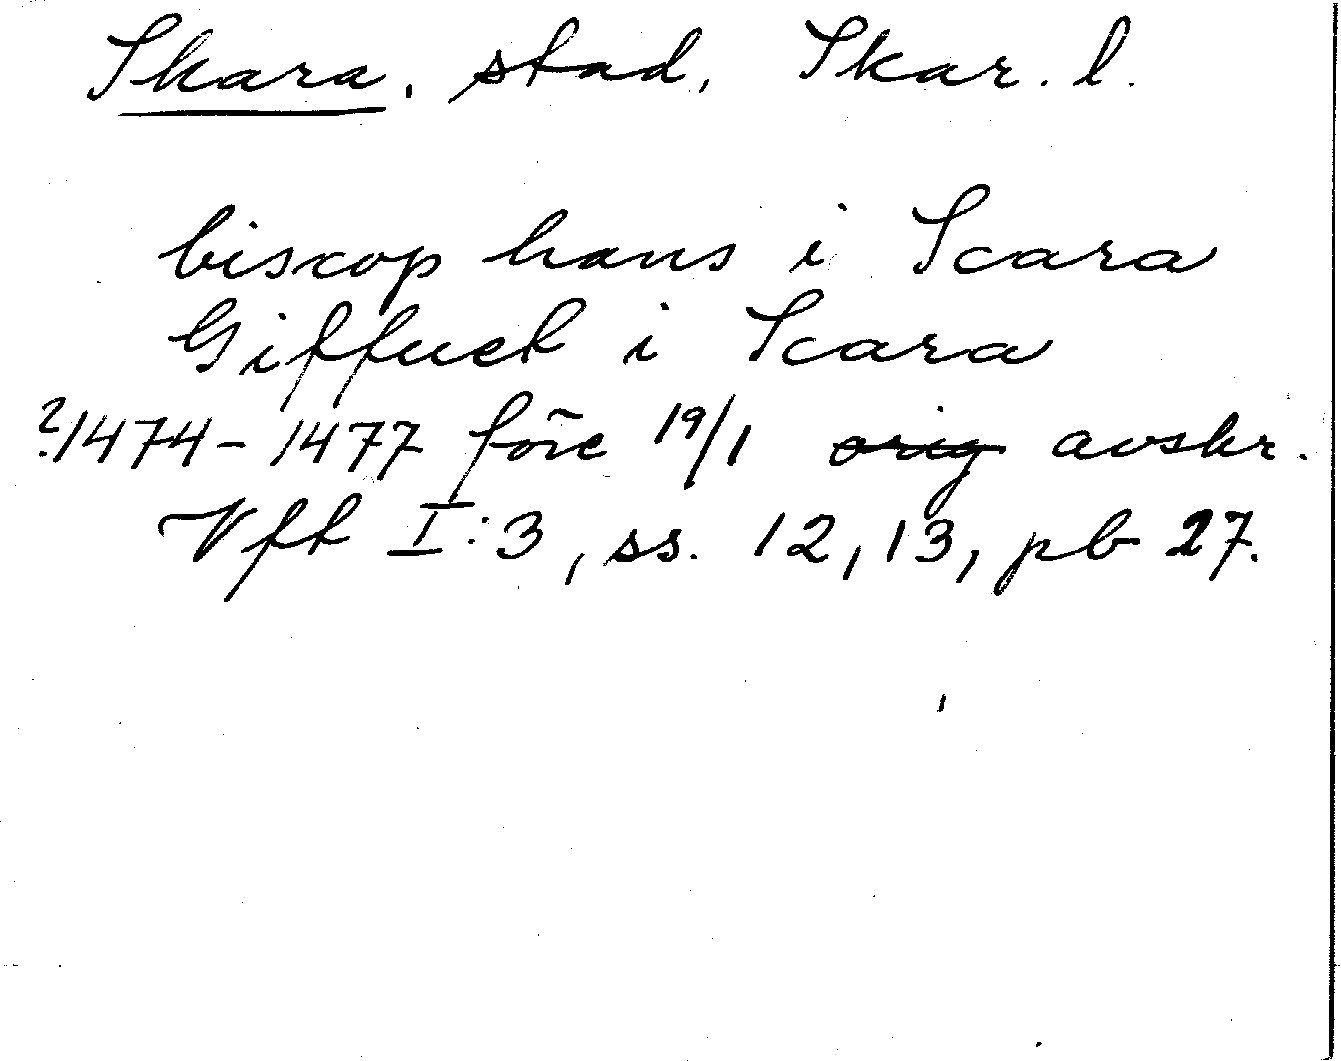 Skara. stad, Skar. l.
biscop hans i Scara
Giffuet i Scara
?1474-1477 före 19/1 orig avskr.
Vft I:3, ss. 12, 13, pb 27.